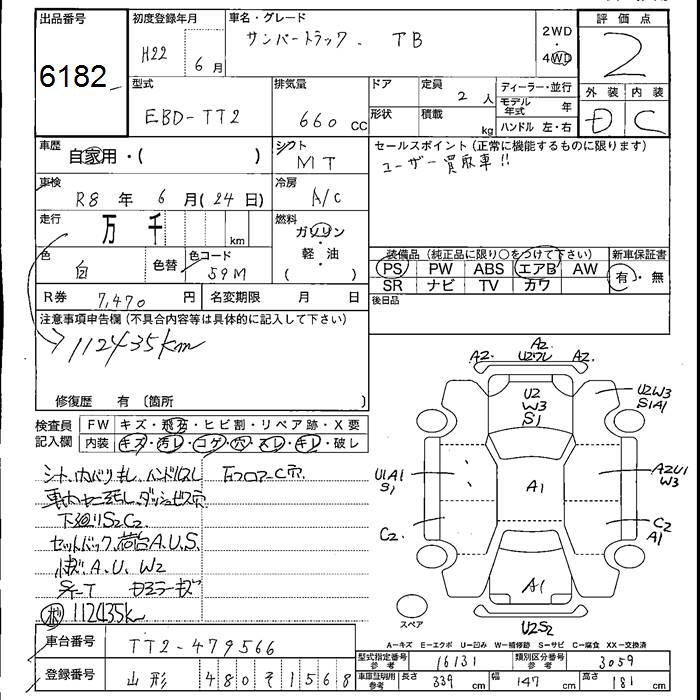 出品番号
6182
初度登録年月
H22 6月
車名・グレード
サンバートラック. TB
2WD
・
4WD
評価点
2
型式
EBD-TT2
排気量
660 CC
ドア
定員
2 人
ディーラー・並行
形状
積載
kg
モデル年式 年
ハンドル 左・右
外装 内装
D C
車歴
自家用・( )
シフト
MT
セールスポイント (正常に機能するものに限ります)
ユーザー買取車!!
車検
R8 年 6 月 (24 日)
冷房
A/C
走行
万 千 km
燃料
ガソリン
・
軽・油
( )
色
白
色替
色コード
59M
装備品 (純正品に限り○をつけて下さい)
新車保証書
PS PW ABS エアB AW
有・無
SR ナビ TV カワ
R券 7,470 円
名変期限 月 日
後日品
注意事項申告欄 (不具合内容等は具体的に記入して下さい)
112435km
修復歴 有 (箇所 )
検査員記入欄
FW キズ・飛石・ヒビ割・リペア跡・X要
内装 キズ・汚レ・コゲ・穴・スレ・キレ・破レ
下廻りS2C2.
セットバック、荷台A.U.S.
A.U. W2
112435k
A2. A2. A2.
U2ワレ
U2
W3
S1
U2W3
S1A1
U1A1
S1
A1
A2U1
W3
C2
C2
A1
A1
U2S2
スペア
A-キズ E-エクボ U-凹み W-補修跡 S-サビ C-腐食 XX-交換済
車台番号 TT2-479566
型式指定番号 参考 16131
類別区分番号 参考 3059
登録番号 山形 480そ1568
車庫証明用 参考 長さ 339 cm 幅 147 cm 高さ 181 cm